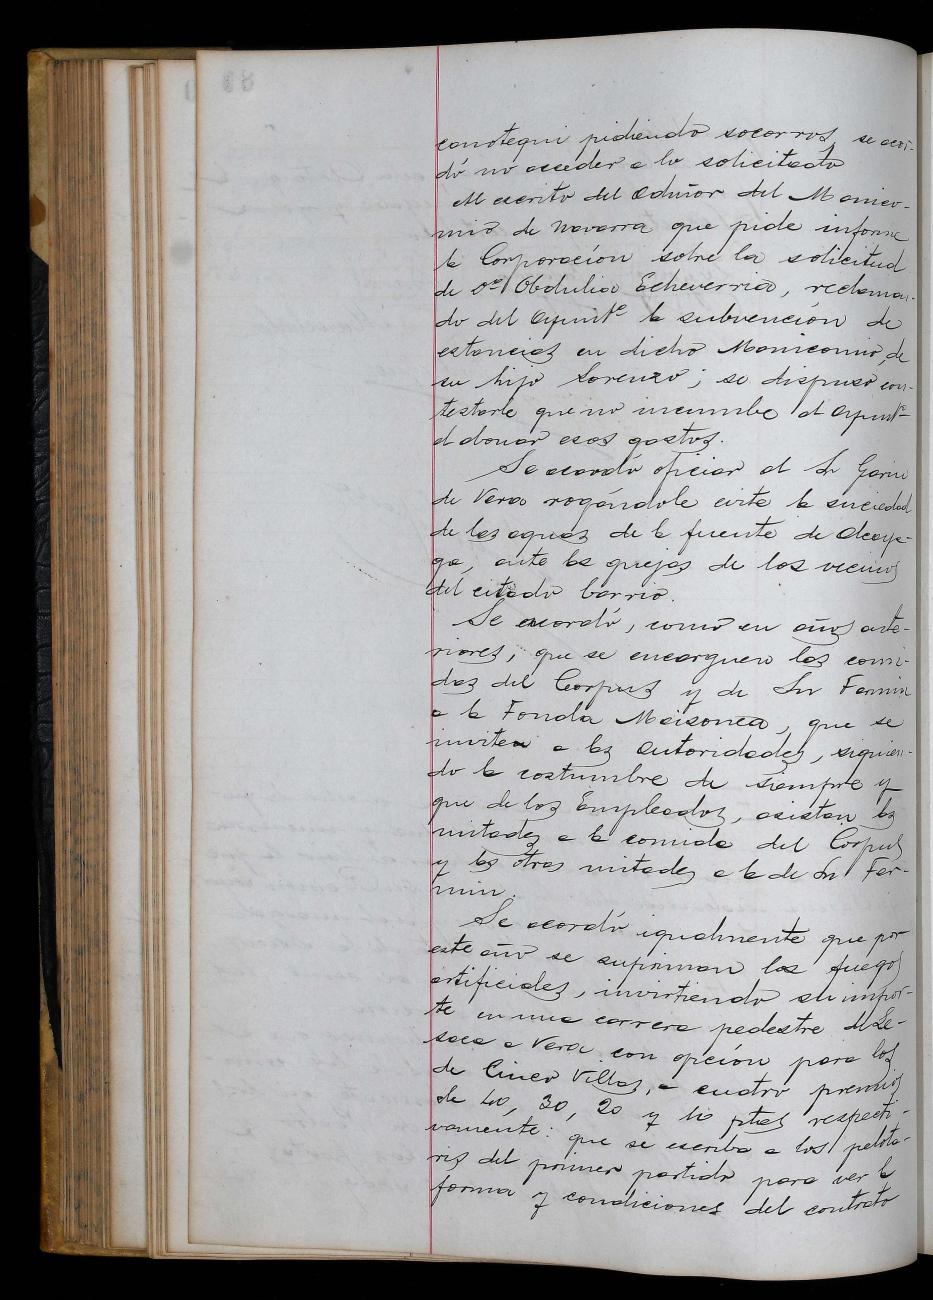 conotegui pidiendo socorros, se acor-
dó no acceder a lo solicitado
Al escrito del Admor del Manico-
mio de Navarra que pide informe
la Corporación sobre la solicitud
de Dª Obdulia Echeverria, reclaman-
do del Ayuntº la subvención de
estancias en dicho Manicomio, de
su hijo Lorenzo; se dispuso con-
testarle que no incumbe al Ayuntº
el donar esos gastos.
Se acordó oficiar al Sr Garin
de Vera rogándole evite la suciedad
de las aguas de la fuente de Alcaya-
ga, ante las quejas de los vecinos
del citado barrio.
Se acordó, como en años ante-
riores, que se encarguen las comi-
das del Corpus y de Sn Fermin
a la Fonda Maisonea, que se
invitea a las autoridades, siguien-
do la costumbre de siempre y
que de los Empleados, asistan las
mitades a la comida del Corpus
y las otras mitades a la de Sn Fer-
min.
Se acordó igualmente que por
este año se supriman los fuegos
artificiales, invirtiendo su impor-
te en una carrera pedestre de Le-
saca a Vera con opción para los
de Cinco Villas, a cuatro premios
de 40, 30, 20 y 10 ptas respecti-
vamente: que se escriba a los pelota-
ris del primer partido para ver la
forma y condiciones del contrato